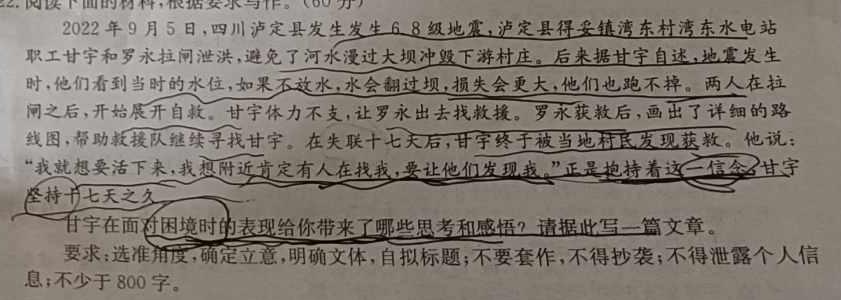 22.阅读下面的材料,根据要求写作。(60分)
2022年9月5日,四川泸定县发生发生6.8级地震,泸定县得妥镇湾东村湾东水电站
职工甘宇和罗永拉闸泄洪,避免了河水漫过大坝冲毁下游村庄。后来据甘宇自述,地震发生
时,他们看到当时的水位,如果不放水,水会翻过坝,损失会更大,他们也跑不掉。两人在拉
闸之后,开始展开自救。甘宇体力不支,让罗永出去找救援。罗永获救后,画出了详细的路
线图,帮助救援队继续寻找甘宇。在失联十七天后,甘宇终于被当地村民发现获救。他说:
“我就想要活下来,我想附近肯定有人在找我,要让他们发现我。”正是抱持着这一信念,甘宇
坚持十七天之久。
甘宇在面对困境时的表现给你带来了哪些思考和感悟?请据此写一篇文章。
要求:选准角度,确定立意,明确文体,自拟标题;不要套作,不得抄袭;不得泄露个人信
息;不少于800字。